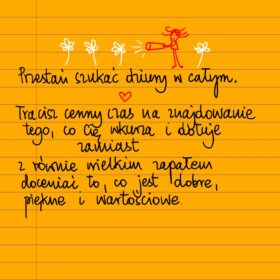 Przestań szukać dziury w całym.
Tracisz cenny czas na znajdowanie
tego, co Cię wkurza i dołuje
zamiast
z równie wielkim zapałem
doceniać to, co jest dobre,
piękne i wartościowe